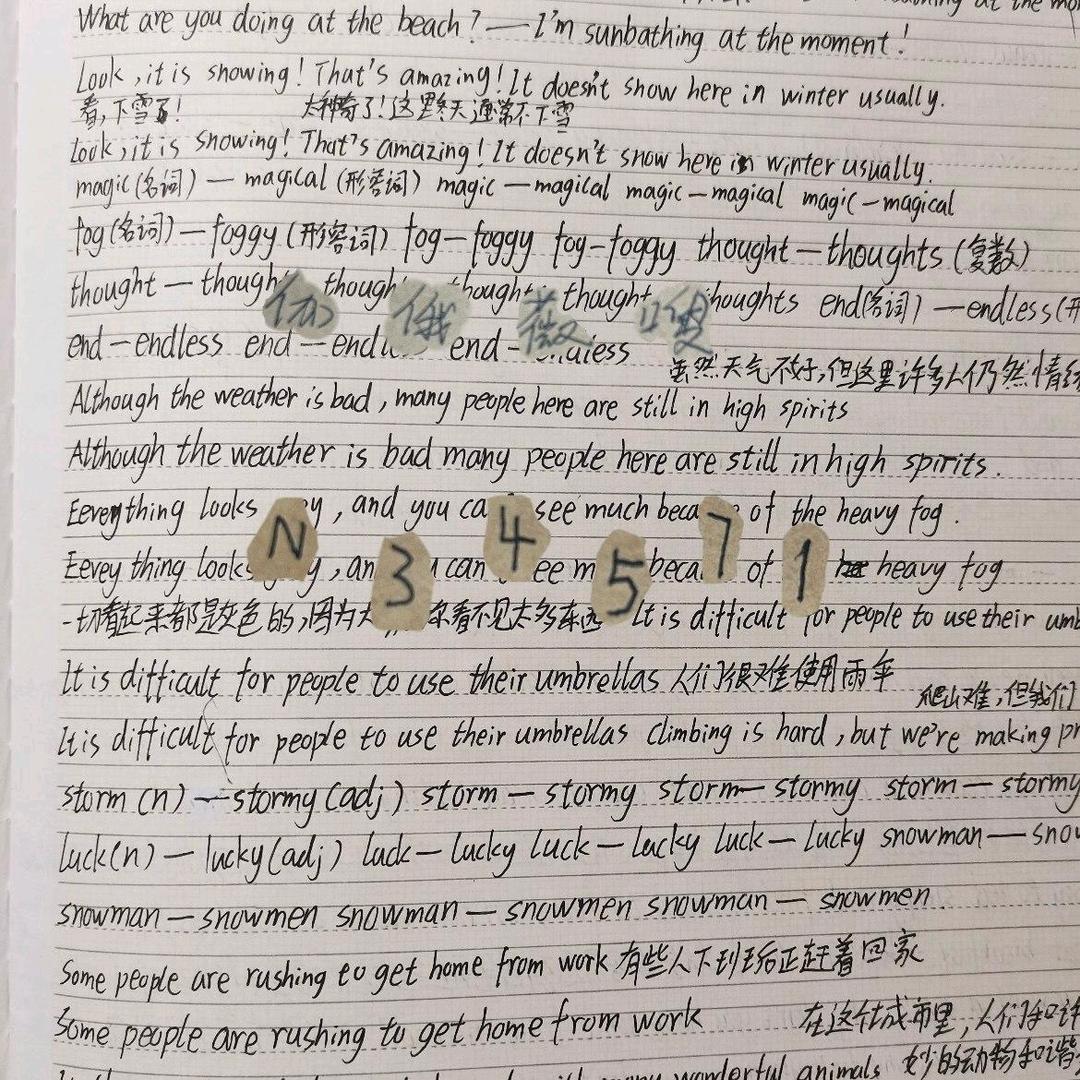 What are you doing at the beach?—I'm sunbathing at the moment!
Look,it is snowing! That's amazing! It doesn't snow here in winter usually.
看,下雪了! 太神奇了!这里冬天通常不下雪
Look,it is snowing! That's amazing! It doesn't snow here in winter usually.
magic(名词)—magical(形容词) magic—magical magic—magical magic—magical
fog(名词)—foggy(形容词) fog—foggy fog—foggy thought—thoughts(复数)
thought—though though thought thought thoughts end(名词)—endless(
伤 俄 薇 嗳
end—endless end—end end-
虽然天气不好,但这里许多人仍然情绪
Although the weather is bad, many people here are still in high spirits
Although the weather is bad many people here are still in high spirits.
Eeverything looks y, and you ca see much beca of the heavy fog.
N 3 4 5 7 1
Eevey thing looks y, an can ee m beca of heavy fog
一切看起来都是灰色的,因为大 你看不见太多东西 It is difficult for people to use their umb
It is difficult for people to use their umbrellas 人们很难使用雨伞
爬山难,但我们
It is difficult for people to use their umbrellas climbing is hard, but we're making pr
storm(n)—stormy(adj) storm—stormy storm—stormy storm—stormy
luck(n)—lucky(adj) luck—lucky luck—lucky luck—lucky snowman—snow
snowman—snowmen snowman—snowmen snowman—snowmen
Some people are rushing to get home from work 有些人下班后正赶着回家
Some people are rushing to get home from work 在这个城市里,人们和许
many wonderful animals 妙的动物和谐